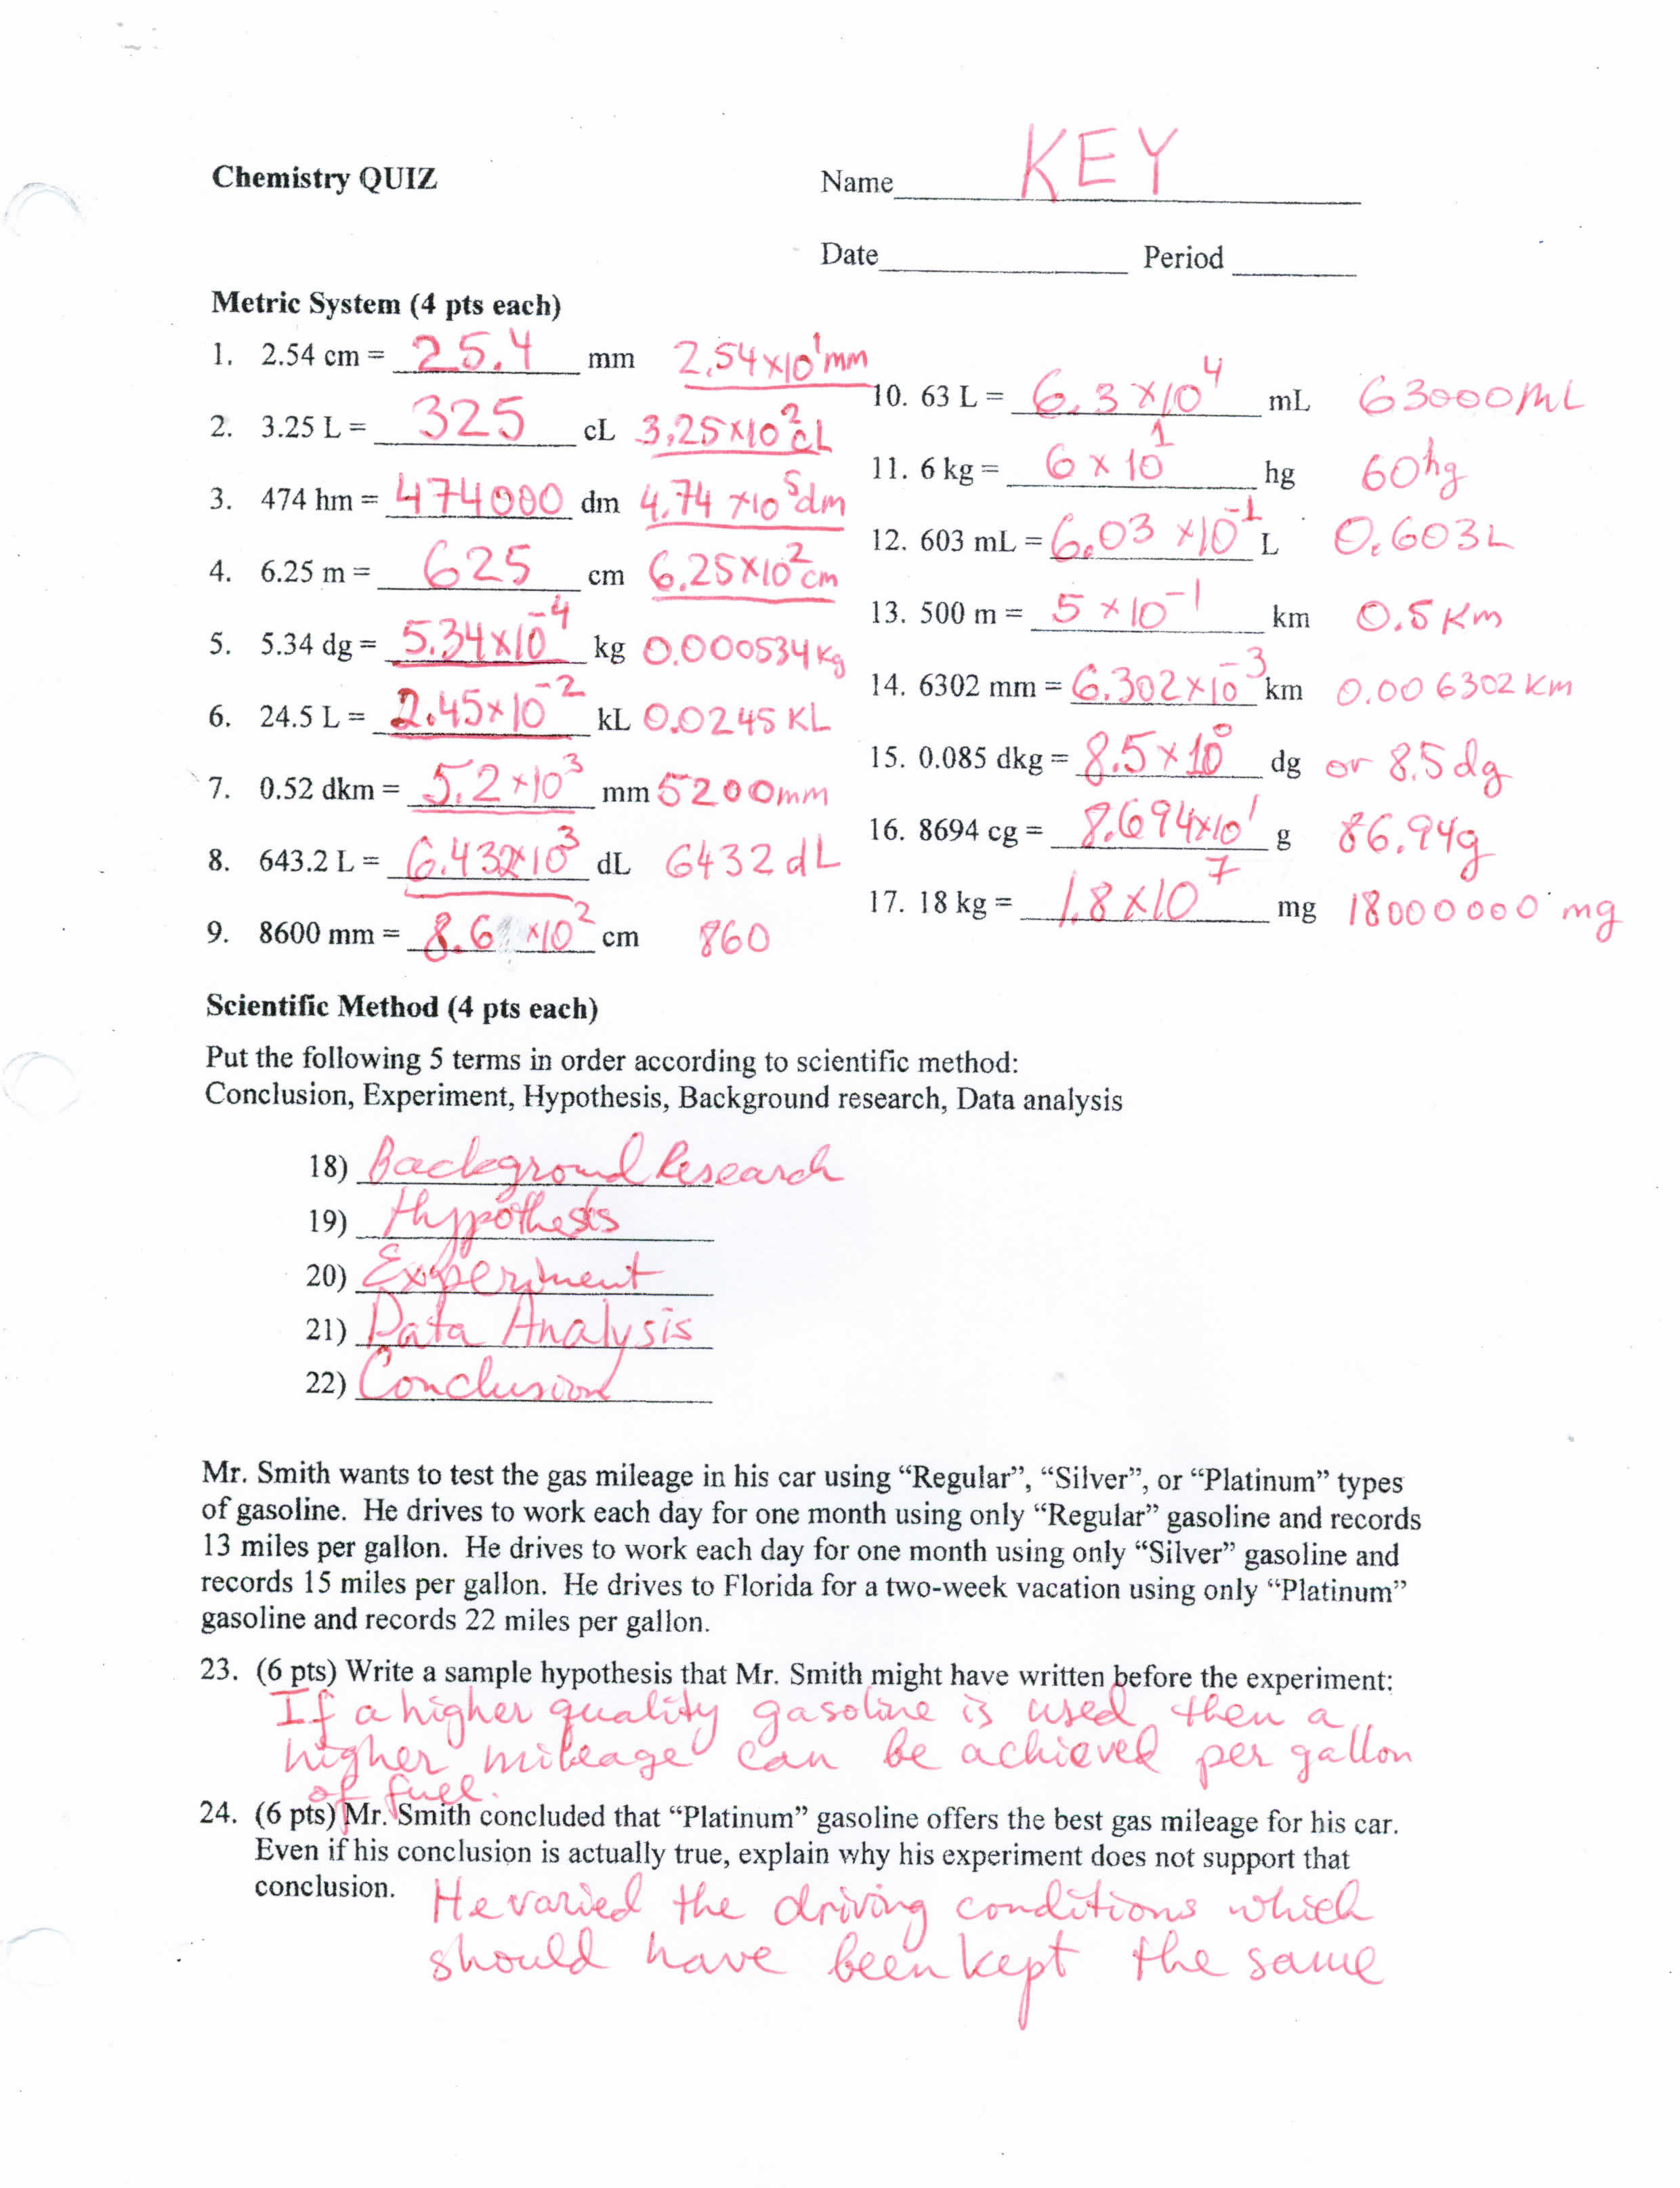 Chemistry QUIZ
Name KEY
Date Period
Metric System (4 pts each)
1. 2.54 cm = 25.4 mm 2.54 x10¹ mm
2. 3.25 L = 325 cL 3.25 x10² cL
3. 474 hm = 474000 dm 4.74 x10⁵ dm
4. 6.25 m = 625 cm 6.25 x10² cm
5. 5.34 dg = 5.34 x10⁻⁴ kg 0.000534 kg
6. 24.5 L = 2.45 x10⁻² kL 0.0245 KL
7. 0.52 dkm = 5.2 x10³ mm 5200mm
8. 643.2 L = 6.432x10³ dL 6432 dL
9. 8600 mm = 8.6 x10² cm 860
10. 63 L = 6.3 x10⁴ mL 63000 mL
11. 6 kg = 6 x 10¹ hg 60 hg
12. 603 mL = 6.03 x10⁻¹ L 0.603 L
13. 500 m = 5 x10⁻¹ km 0.5 Km
14. 6302 mm = 6.302 x10⁻³ km 0.006302 Km
15. 0.085 dkg = 8.5 x 10⁰ dg or 8.5 dg
16. 8694 cg = 8.694x10¹ g 86.94g
17. 18 kg = 1.8 x10⁷ mg 18000000 mg
Scientific Method (4 pts each)
Put the following 5 terms in order according to scientific method:
Conclusion, Experiment, Hypothesis, Background research, Data analysis
18) Background Research
19) Hypothesis
20) Experiment
21) Data Analysis
22) Conclusion
Mr. Smith wants to test the gas mileage in his car using “Regular”, “Silver”, or “Platinum” types
of gasoline. He drives to work each day for one month using only “Regular” gasoline and records
13 miles per gallon. He drives to work each day for one month using only “Silver” gasoline and
records 15 miles per gallon. He drives to Florida for a two-week vacation using only “Platinum”
gasoline and records 22 miles per gallon.
23. (6 pts) Write a sample hypothesis that Mr. Smith might have written before the experiment:
If a higher quality gasoline is used, then a
higher mileage can be achieved per gallon
of fuel.
24. (6 pts) Mr. Smith concluded that “Platinum” gasoline offers the best gas mileage for his car.
Even if his conclusion is actually true, explain why his experiment does not support that
conclusion. He varied the driving conditions which
should have been kept the same